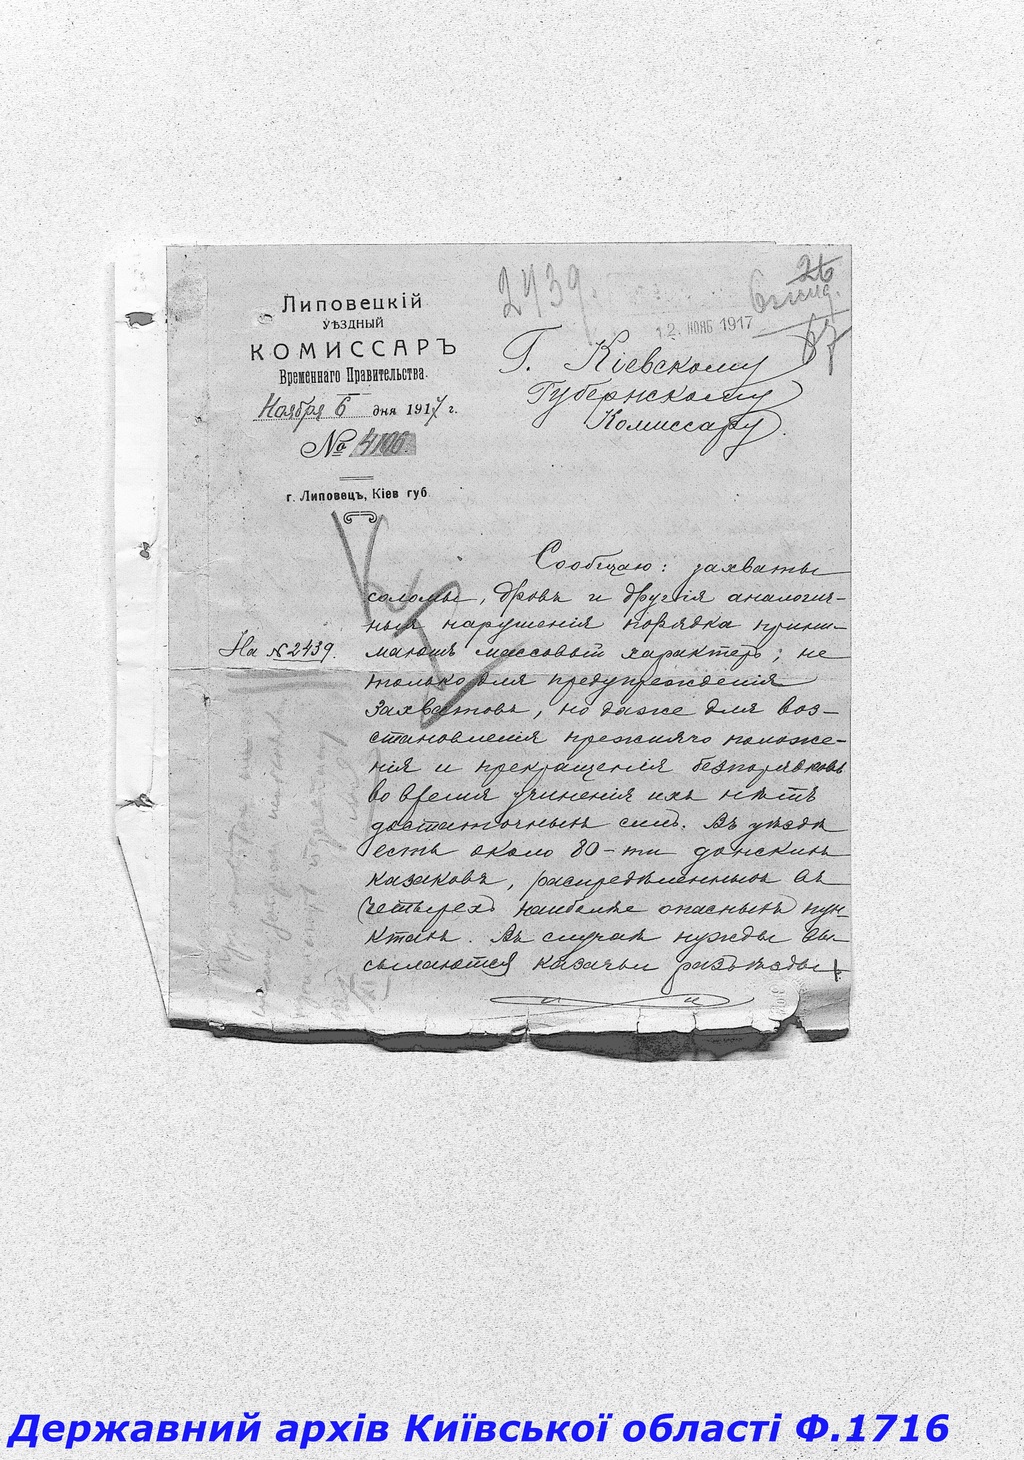 2439.
26
67
12 НОЯБ 1917
Липовецкій
УѢЗДНЫЙ
КОМИССАРЪ
Временнаго Правительства.
Ноября 6 дня 1917 г.
№ 4106.
г. Липовецъ, Кіев губ.
Г. Кіевскому
Губернскому
Комиссару.
На № 2439.
Сообщаю: захваты
соломы, дровъ и другія аналогич-
ныя нарушенія порядка прини-
маютъ массовый характеръ; не
только для предупрежденія
захватовъ, но даже для воз-
становленія прежняго положе-
нія и прекращенія безпорядковъ
во время учиненія ихъ нѣтъ
достаточныхъ силъ. Въ уѣздѣ
есть около 80-ти донскихъ
казаковъ, распредѣленныхъ въ
четырехъ наиболѣе опасныхъ пун-
ктахъ. Въ случаѣ нужды вы-
сылаются казачьи разъѣзды.
Державний архів Київської області Ф.1716